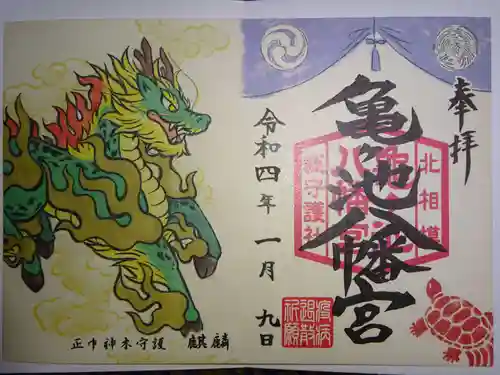 奉拝
亀ヶ池八幡宮
北相模
総守護社
令和四年 一月 九日
疫病
退散
祈願
正中神木守護 麒麟